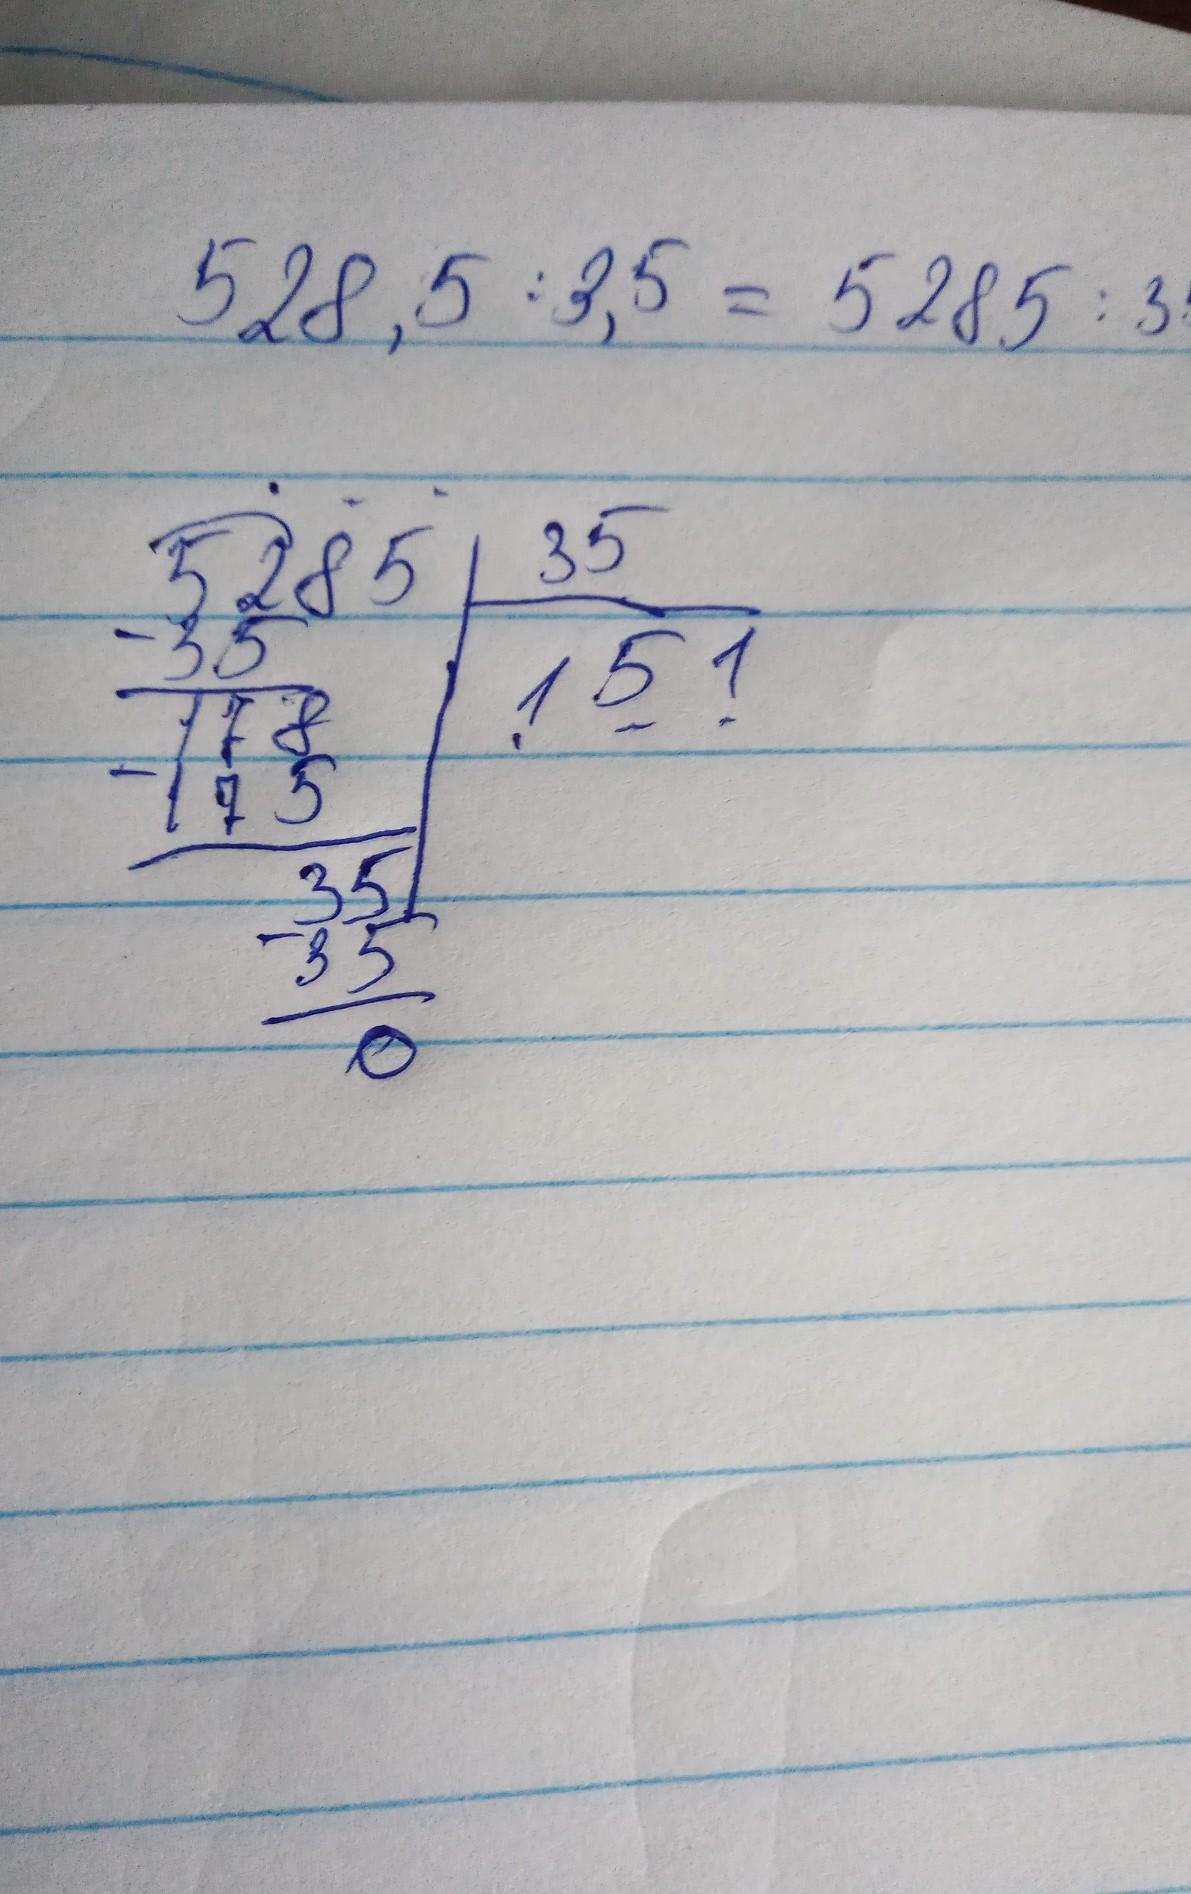 528,5 : 3,5 = 5285 : 35
5285 35
-35 151
178
-175
35
-35
0